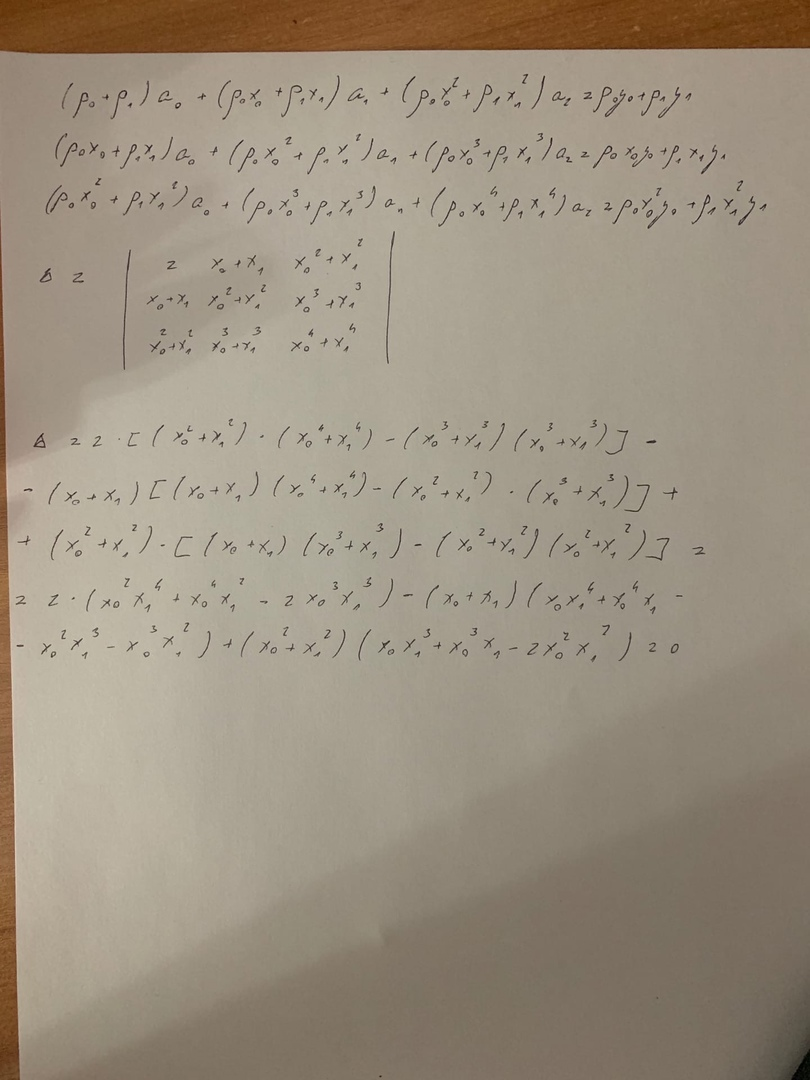 (ρ₀+ρ₁) a₀ + (ρ₀x₀ + ρ₁x₁) a₁ + (ρ₀x₀² + ρ₁x₁²) a₂ = ρ₀y₀+ρ₁y₁
(ρ₀x₀+ρ₁x₁) a₀ + (ρ₀x₀² + ρ₁x₁²) a₁ + (ρ₀x₀³+ρ₁x₁³) a₂ = ρ₀x₀y₀+ρ₁x₁y₁
(ρ₀x₀² + ρ₁x₁²) a₀ + (ρ₀x₀³+ρ₁x₁³) a₁ + (ρ₀x₀⁴+ρ₁x₁⁴) a₂ = ρ₀x₀²y₀ + ρ₁x₁²y₁
Δ = | 2 x₀+x₁ x₀²+x₁² |
x₀+x₁ x₀²+x₁² x₀³+x₁³
x₀²+x₁² x₀³+x₁³ x₀⁴+x₁⁴
Δ = 2·[(x₀²+x₁²)·(x₀⁴+x₁⁴) − (x₀³+x₁³)(x₀³+x₁³)] −
− (x₀+x₁)[(x₀+x₁)(x₀⁴+x₁⁴) − (x₀²+x₁²)·(x₀³+x₁³)] +
+ (x₀²+x₁²)·[(x₀+x₁)(x₀³+x₁³) − (x₀²+x₁²)(x₀²+x₁²)] =
= 2·(x₀²x₁⁴ + x₀⁴x₁² − 2x₀³x₁³) − (x₀+x₁)(x₀x₁⁴+x₀⁴x₁ −
− x₀²x₁³ − x₀³x₁²) + (x₀²+x₁²)(x₀x₁³+x₀³x₁ − 2x₀²x₁²) = 0